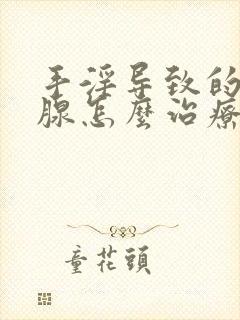 手淫导致的
腺怎麼治療
童花頭